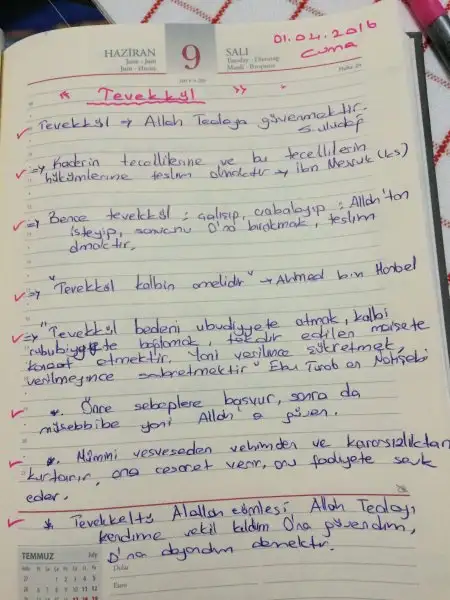 01.04.2016
Cuma
HAZİRAN
9
SALI
Tevekkül
Tevekkül → Allah Teala'ya güvenmektir.
⇒ Kaderin tecellilerine ve bu tecellilerin
hükümlerine teslim olmaktır → ibn Mesruk (ks)
⇒ Bence tevekkül : çalışıp, çabalayıp : Allah'tan
isteyip, sonucunu O'na bırakmak, teslim
olmaktır.
⇒ "Tevekkül kalbin amelidir" → Ahmed bin Hanbel
⇒ "Tevekkül bedeni ubudiyyete atmak, kalbi
rububiyyete bağlamak, takdir edilen maişete
kanaat etmektir. Yani verilince şükretmek,
verilmeyince sabretmektir" Ebu Turab en Nahşebi
* Önce sebeplere başvur, sonra da
müsebbibe yani Allah'a güven.
* Mümini vesveseden vehimden ve kararsızlıktan
kurtarır, ona cesaret verir, onu faaliyete sevk
eder.
* Tevekkeltü Alallah cümlesi, Allah Teala'yı
kendime vekil kıldım O'na güvendim,
O'na dayandım demektir.
TEMMUZ
July